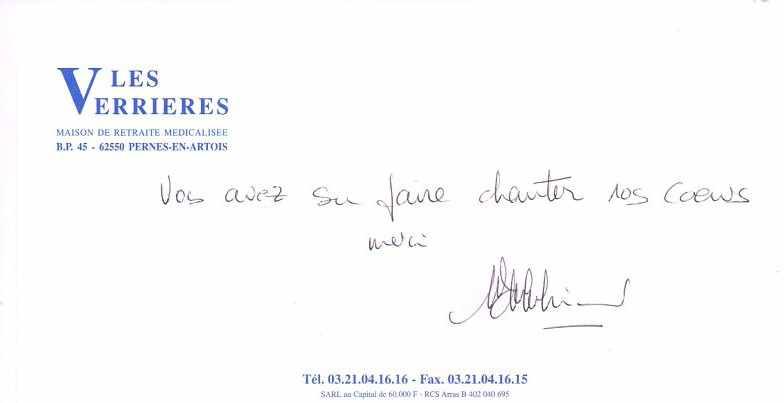 LES
VERRIERES
MAISON DE RETRAITE MEDICALISEE
B.P. 45 - 62550 PERNES-EN-ARTOIS
Vous avez su faire chanter nos coeurs
merci
Tél. 03.21.04.16.16 - Fax. 03.21.04.16.15
SARL au Capital de 60.000 F - RCS Arras B 402 040 695